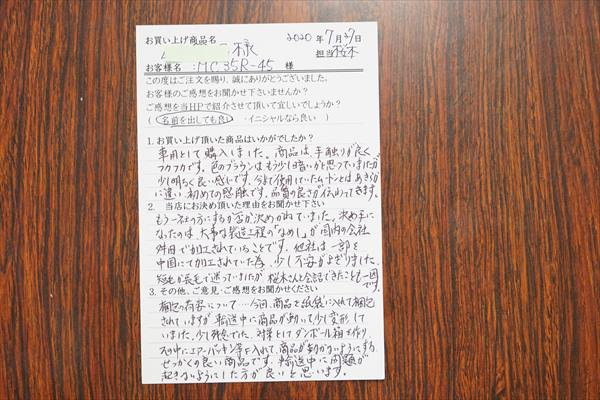 お買い上げ商品名 様 2020年7月27日
担当 桜木
お客様名 :MC35R-45 様
この度はご注文を賜り、誠にありがとうございました。
お客様のご感想をお聞かせ下さいませんか?
ご感想を当HPで紹介させて頂いて宜しいでしょうか?
( 名前を出しても良い ・イニシャルなら良い )
1. お買い上げ頂いた商品はいかがでしたか?
車用として購入しました。商品は、手触りが良く
フカフカです。色のブラウンはもう少し暗いかと思っていましたが
少し明るく良い感じです。今まで使用していたムートンとはあきらか
に違い、初めての感触です。品質の良さが伝わってきます。
2. 当店にお決め頂いた理由をお聞かせ下さい
もう一社の方にするか否か決めかねていました。決め手に
なったのは、大事な製造工程の「なめし」が国内の会社
で加工されていることです。他社は一部を
中国にて加工されていた為、少し不安がよぎりました。
短毛か長毛で迷っていましたが 桜木さんと会話できたことも一因
です。
3. その他、ご意見・ご感想をお聞かせください
梱包の荷姿について…今回、商品を紙袋に入れて梱包
されていますが 輸送中に商品が動いて少し変形して
いました。少し残念でした。対策としてダンボール箱を作り
その中にエアーパッキン等を入れて、商品が動かないようにする
せっかくの良い商品です。輸送中に問題が
起きないようにした方が良いと思います。